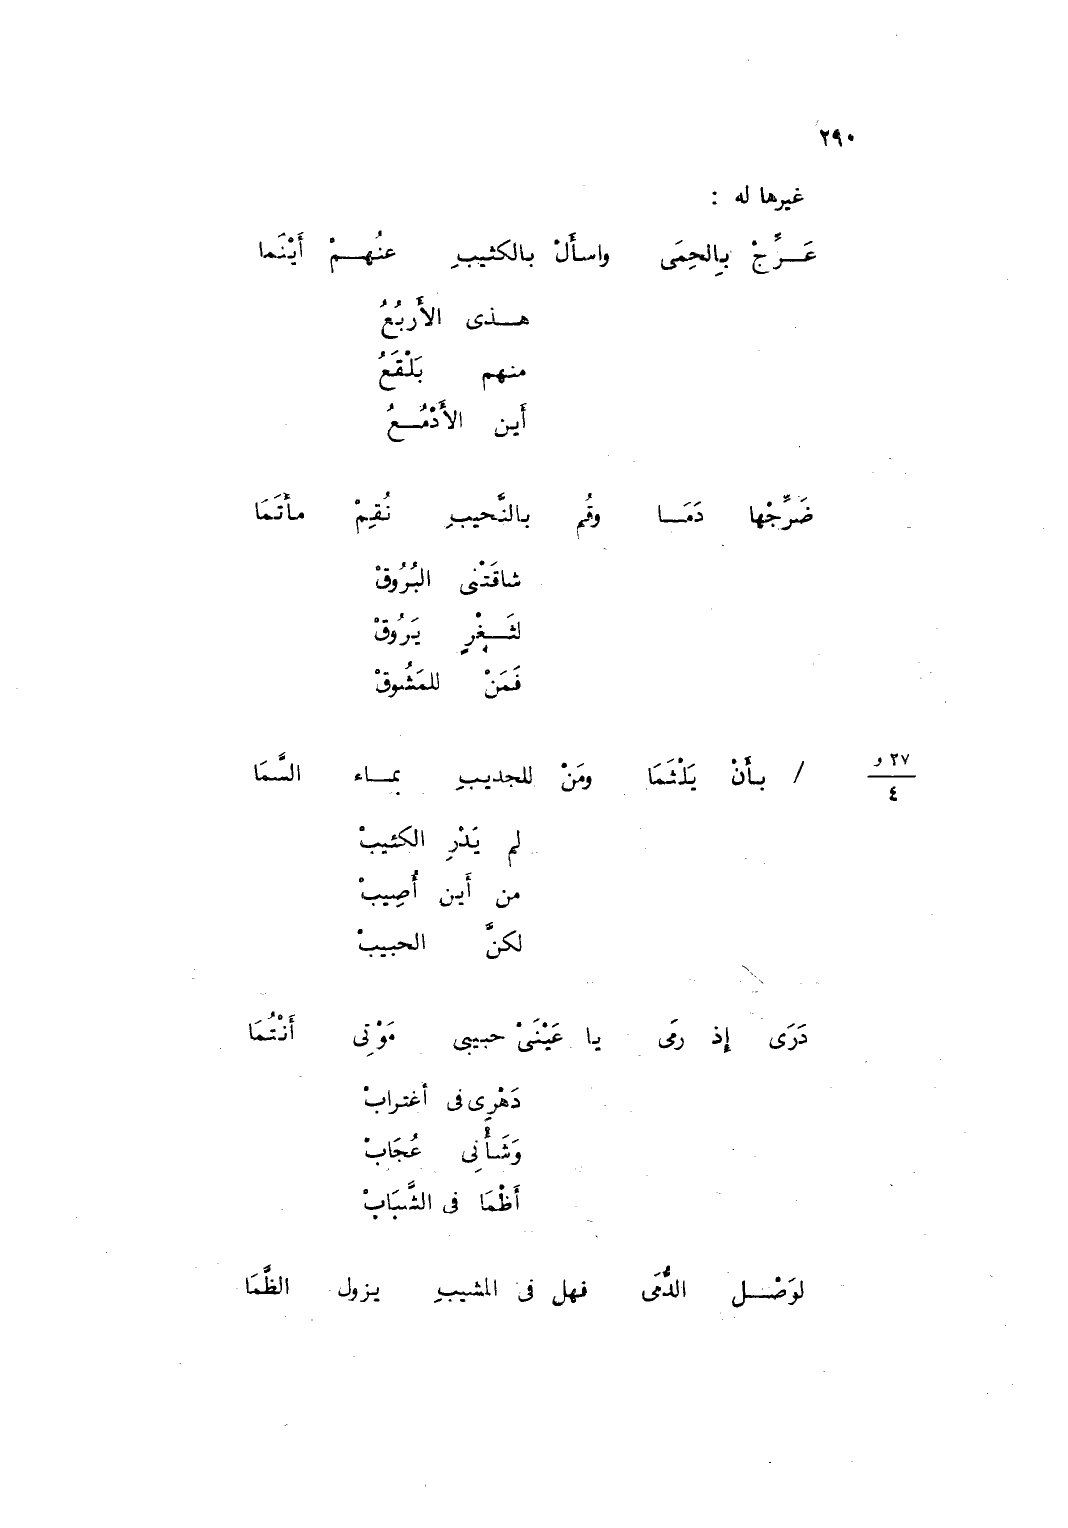 ٢٩٠
غيرها له :
عَـرِّجْ بِالحِمَى واسأَلْ بالكثيبِ عنُهـمْ أَيْنَما
هـذى الأَربُعُ
منهم بَلْقَعُ
أَين الأَدْمُـعُ
ضَرِّجْها دَمَـا وقُم بالنَّحيبِ نُقِمْ مأتَمَا
شاقَتْنى البُرُوقْ
لثَـغْرٍ يَرُوقْ
فَمَنْ للمَشُوقْ
٣٧ و
٤
/ بأَنْ يَلْثَمَا ومَنْ للجديبِ بمـاء السَّمَا
لم يَدْرِ الكئيبْ
من أَين أُصِيبْ
لكنَّ الحبيبْ
دَرَى إِذ رمَى يا عَيْنَىْ حبيبى مَوْتِى أَنْتُمَا
دَهْرِى فى أغترابْ
وَشَأْنِى عُجَابْ
أَظْمَا فى الشَّبَابْ
لوَصْـل الدُّمَى فهل فى المشيبِ يزول الظَّمَا